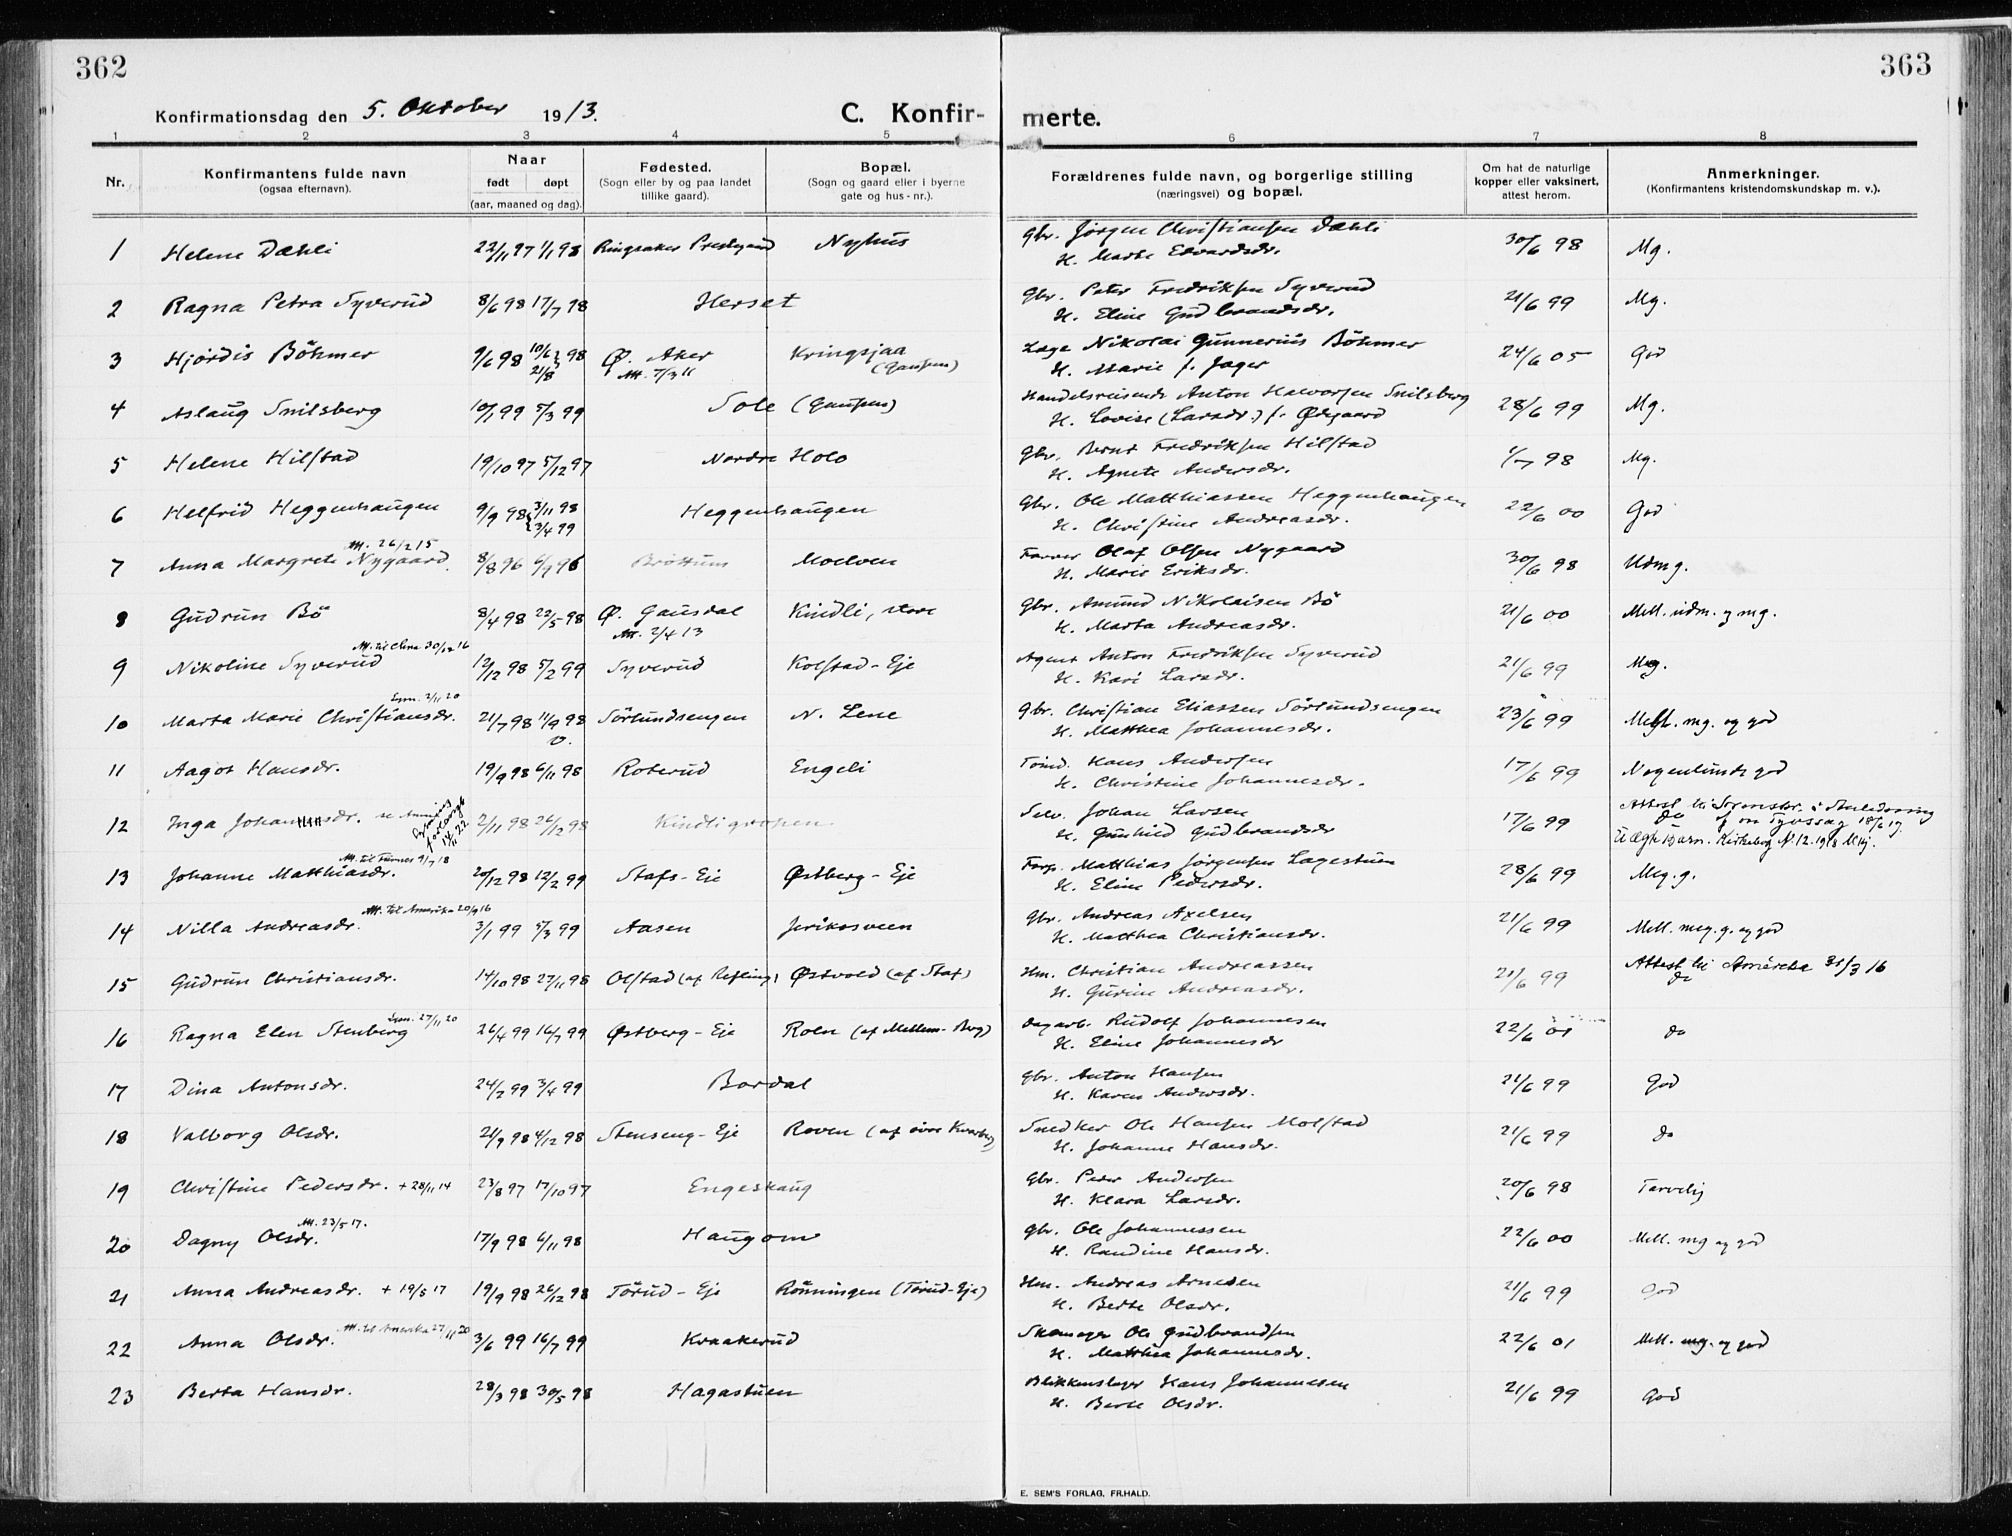 362
363
Konfirmationsdag den 5. Oktober 1913.
C. Konfir-
merte.
1 2 3 4 5 6 7 8
Nr.
Konfirmantens fulde navn
(ogsaa efternavn).
Naar
født døpt
(aar, maaned og dag).
Fødested.
(Sogn eller by og paa landet
tillike gaard).
Bopæl.
(Sogn og gaard eller i byerne
gate og hus-nr.).
Forældrenes fulde navn, og borgerlige stilling
(næringsvei) og bopæl.
Om hat de naturlige
kopper eller vaksinert,
attest herom.
Anmerkninger.
(Konfirmantens kristendomskundskap m. v.).
1 Helene Dæhli 22/11 97 1/1 98 Ringsaker Prestgaard Nyhus Gbr. Jörgen Christiansen Dæhli 30/6 98 Mg.
H. Marte Edvardsdr.
2 Ragna Petra Syverud 8/6 98 17/7 98 Herset Gbr. Peter Fredriksen Syverud 21/6 99 Mg.
H. Eline Gudbrandsdr.
3 Hjördis Böhmer 9/6 98 10/6 21/8 } 98 Ø. Aker Kringsjaa Læge Nikolai Gunnerius Böhmer 24/6 05 God
Att. 7/3 11 (Gaupen) H. Marie f. Jager
4 Aslaug Snilsberg 10/1 99 5/3 99 Sole (Gaupen) Handelsreisende Anton Halvorsen Snilsberg 28/6 99 Mg.
H. Lovise (Larsdr.) f. Ødegaard
5 Helene Hilstad 19/10 97 5/12 97 Nordre Holo Gbr. Bernt Fredriksen Hilstad 1/7 98 Mg.
H. Agnete Andersdr.
6 Helfrid Heggenhaugen 9/9 98 { 3/11 98 3/4 99 Heggenhaugen Gbr. Ole Matthiassen Heggenhaugen 22/6 00 God
H. Christine Andreasdr.
Att. 26/2 15
7 Anna Margrete Nygaard 8/8 96 6/9 96 Bröttum Moelven Farver Olaf Olsen Nygaard 30/6 98 Udmg.
H. Marie Eriksdr.
8 Gudrun Bö 8/4 98 22/5 98 Ø. Gausdal Kindli, store Gbr. Amund Nikolaisen Bö 21/6 00 Mell. udm. og mg.
Att. 2/4 13 H. Marta Andreasdr.
9 Nikoline Syverud 12/12 98 5/2 99 Syverud Kolstad-Eje Agent Anton Fredriksen Syverud 21/6 99 Mg.
H. Kari Larsdr.
10 Marta Marie Christiansdr. 21/7 98 11/9 98 Sörlundsengen N. Lene Gbr. Christian Eliassen Sörlundsengen 23/6 99 Mell. mg. og god
H. Matthea Johannesdr.
11 Aagot Hansdr. 19/9 98 6/11 98 Roterud Engeli Tömd. Hans Andersen 17/6 99 Nogenlunde god
H. Christine Johannesdr.
12 Inga Johansdr. 2/11 98 26/12 98 Kindligropen Selv. Johan Larsen 17/6 99
H. Gunhild Gudbrandsdr
13 Johanne Matthiasdr. Att. til Furnes 9/7 18 20/12 98 12/2 99 Stafs-Eje Østberg-Eje Forp. Matthias Jörgensen Lagestuen 28/6 99 Meg. g.
H. Eline Pedersdr.
Att. til Amerika 20/9 16
14 Nilla Andreasdr. 3/1 99 5/3 99 Aasen Jerikosveen Gbr. Andreas Axelsen 21/6 99 Mell. meg. g. og god
H. Matthea Christiansdr.
15 Gudrun Christiansdr. 14/10 98 27/11 98 Olstad (af Refling) Østvold (af Staf) Hm. Christian Andreassen 21/6 99 Attest til Amerika 31/3 16
H. Gurine Andreasdr. do
16 Ragna Elen Stenberg 26/4 99 16/7 99 Østberg-Eje Roen (af Mellem-Berg) Dagarb. Rudolf Johannesen 22/6 01 do
H. Eline Johannesdr
17 Dina Antonsdr. 24/2 99 3/4 99 Bordal Gbr. Anton Hansen 21/6 99 God
H. Karen Andersdr.
18 Valborg Olsdr. 21/9 98 4/12 98 Stenseng-Eje Roven (af övre Kvarberg) Snedker Ole Hansen Molstad 21/6 99 do
H. Johanne Hansdr.
19 Christine Pedersdr. + 28/11 14 23/8 97 17/10 97 Engeshaug Gbr. Peder Andersen 20/6 98 Tarvelig
H. Klara Larsdr.
Att. 23/5 17.
20 Dagny Olsdr. 17/9 98 6/11 98 Haugom Gbr. Ole Johannessen 22/6 00 Mell. mg og god
H. Randine Hansdr.
21 Anna Andreasdr. + 19/5 17 19/9 98 26/12 98 Törud-Eje Rönningen (Törud-Eje) Hm. Andreas Arnesen 21/6 99 God
H. Berte Olsdr.
22 Anna Olsdr. Att. til Amerika 27/11 20 3/6 99 16/7 99 Kraakerud Skomager Ole Gudbrandsen 22/6 01 Mell. mg. og god
H. Matthea Johannesdr.
23 Berta Hansdr. 28/3 98 30/5 98 Hagastuen Blikkenslager Hans Johannesen 21/6 99 God
H. Berte Olsdr.
E. SEM'S FORLAG, FR.HALD.